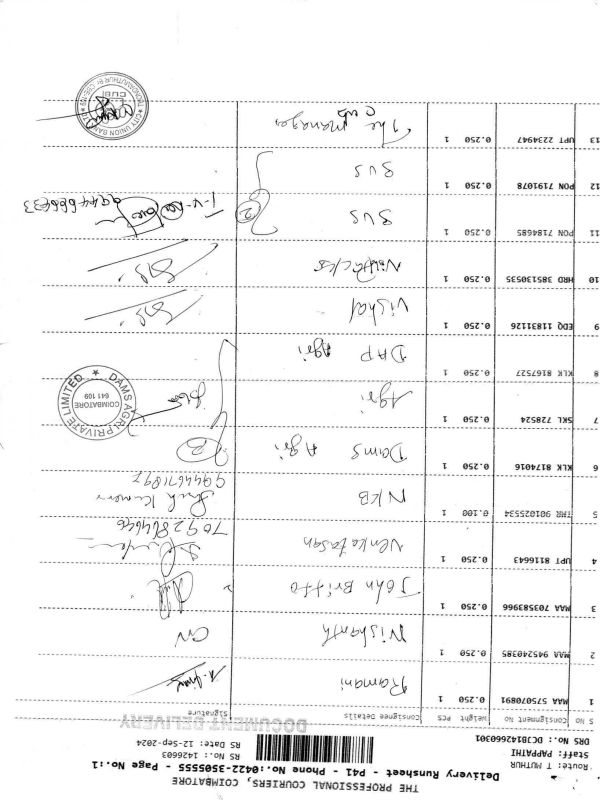 THE PROFESSIONAL COURIERS, COIMBATORE
Delivery Runsheet - P41 - Phone No.:0422-3505555 - Page No.:1
Route: T MUTHUR
Staff: PAPPATHI
DRS No.: DCJB1426660301
RS No: 1426603
RS Date: 12-Sep-2024
DOCUMENT DELIVERY
S No Consignment No Weight PCS Consignee Details Signature
1 MAA 575070891 0.250 1 Ramani
2 MAA 945240385 0.250 1 Nishanth
3 MAA 703583966 0.250 1 John Britto
4 UPT 8116643 0.250 1 Venkatasan 7092864646
5 THR 901025534 0.100 1 NKB
6 KLK 8174016 0.250 1 Dams Agri
7 SKL 728524 0.250 1 Agri
8 KLK 8167527 0.250 1 DAP Agri
DAMS AGRI PRIVATE LIMITED
COIMBATORE
641 109
9 EDQ 11831126 0.250 1 Vishal
10 HRD 385130535 0.250 1
11 PON 7184685 0.250 1 SUS 2
12 PON 7191078 0.250 1 SUS
13 UPT 2234947 0.250 1 The manager CUB
CITY UNION BANK
CUB